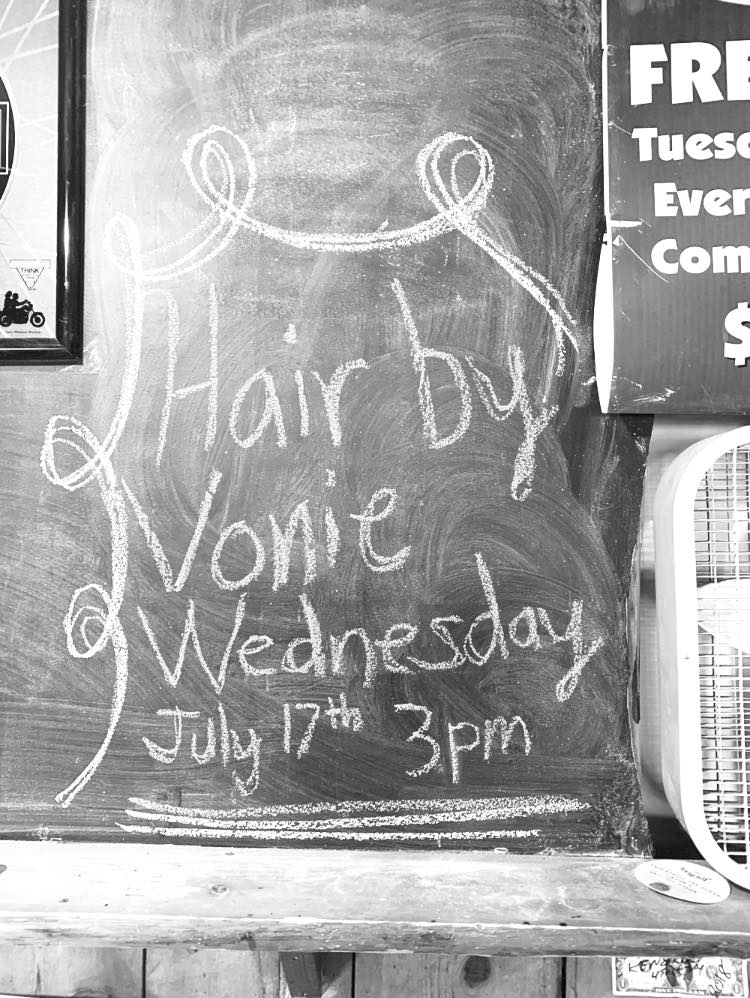 Hair by
Vonie
Wednesday
July 17th 3pm
THINK
FRE
Tuesd
Ever
Com
$